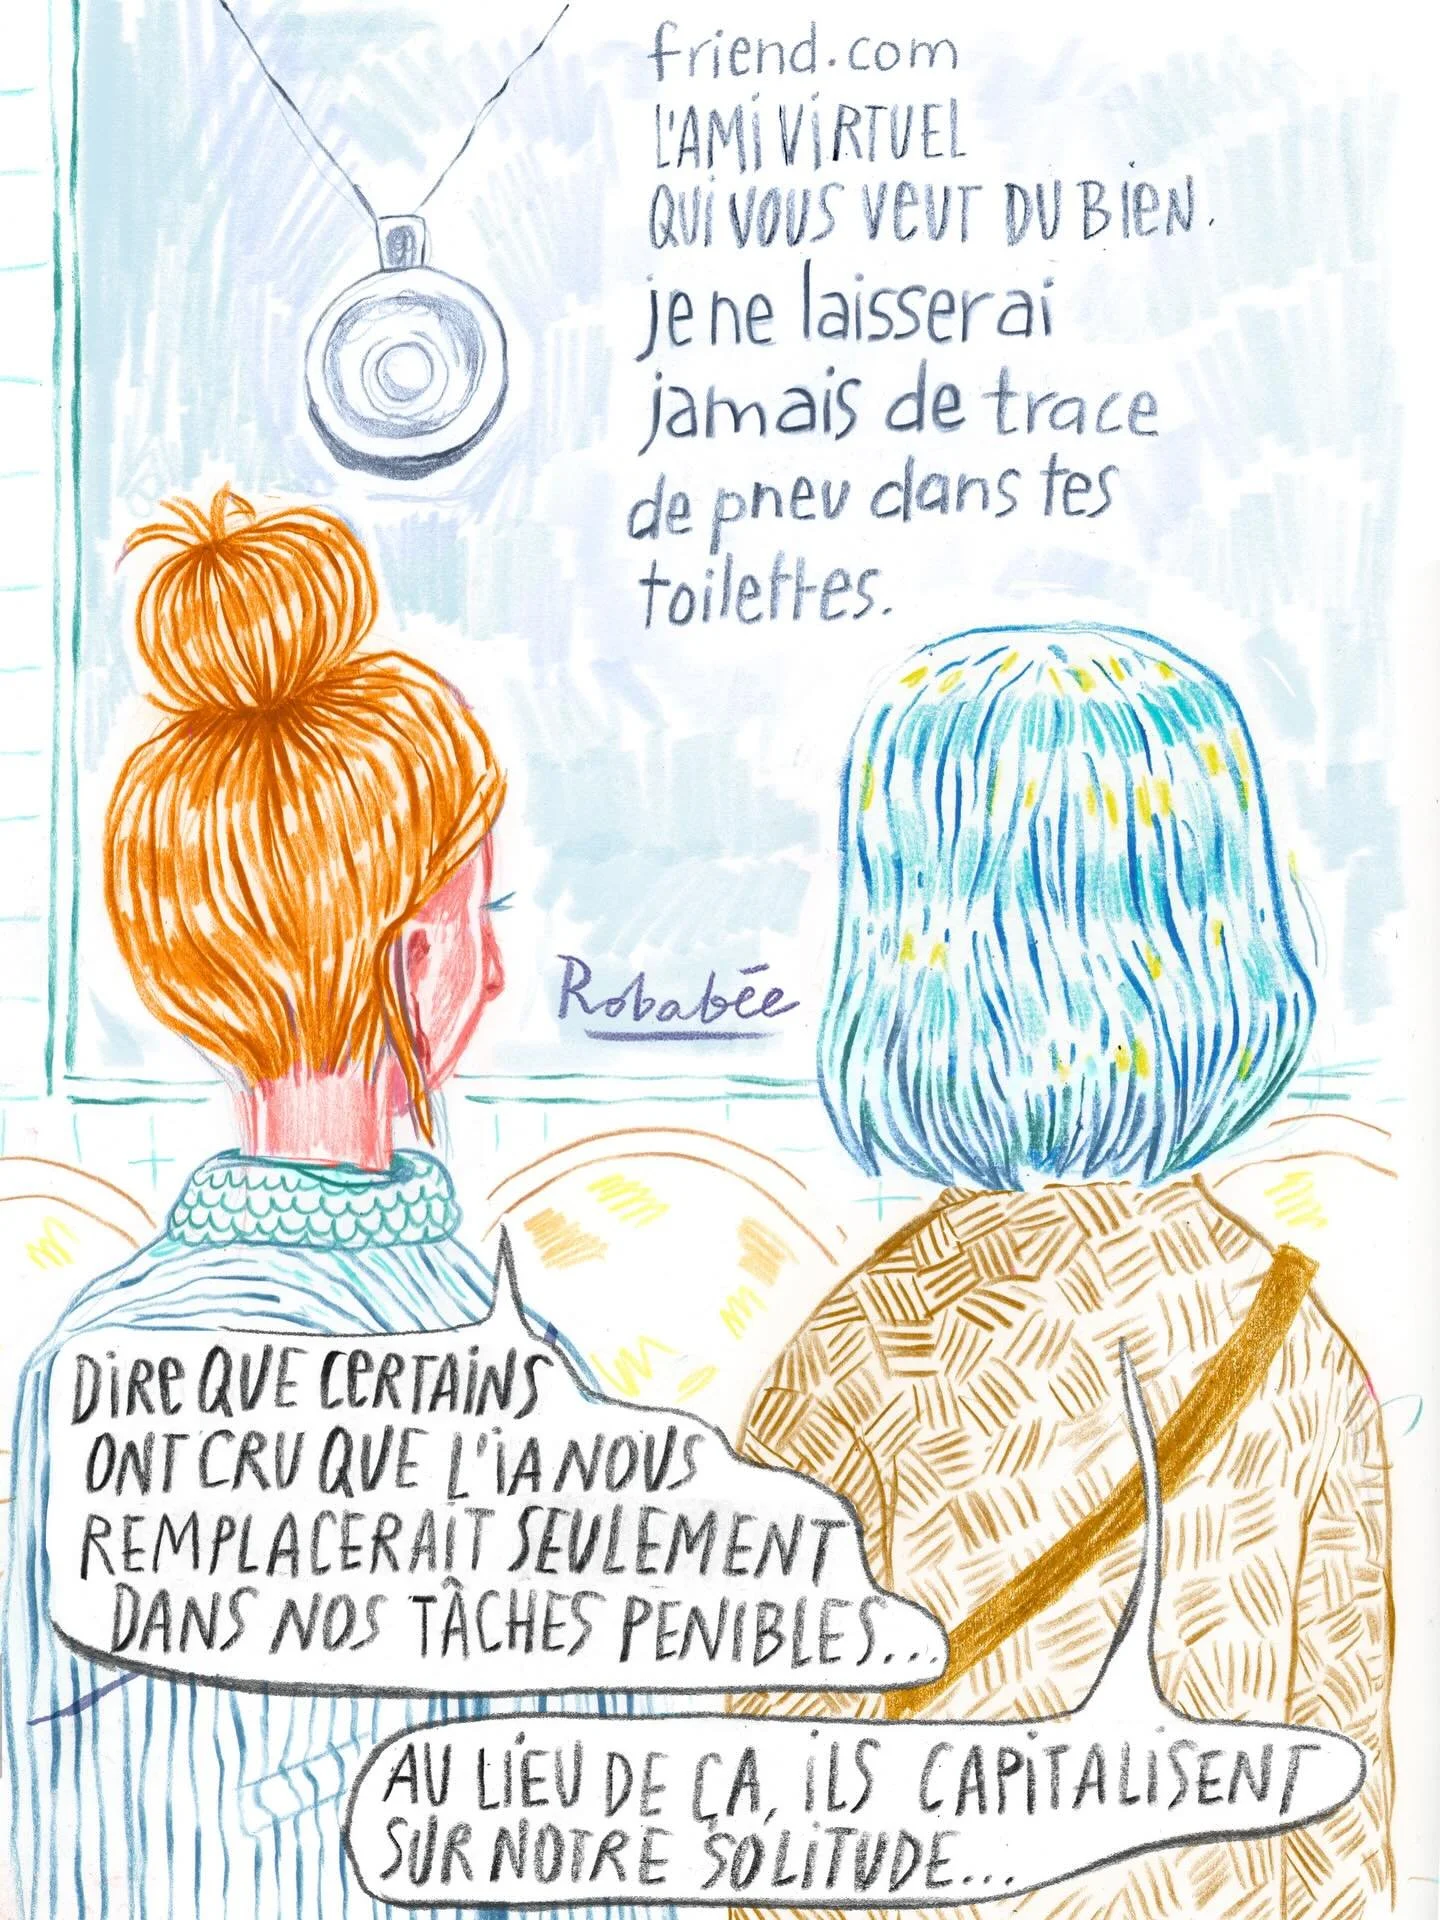 friend.com
L'AMI VIRTUEL
QUI VOUS VEUT DU BIEN.
je ne laisserai
jamais de trace
de pneu dans tes
toilettes.
Robabée
DIRE QUE CERTAINS
ONT CRU QUE L'IA NOUS
REMPLACERAIT SEULEMENT
DANS NOS TÂCHES PENIBLES...
AU LIEU DE ÇA, ILS CAPITALISENT
SUR NOTRE SOLITUDE...